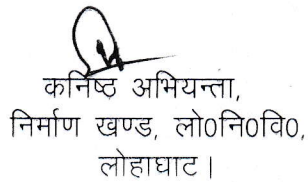 कनिष्ठ अभियन्ता,
निर्माण खण्ड, लो0नि0वि0,
लोहाघाट।